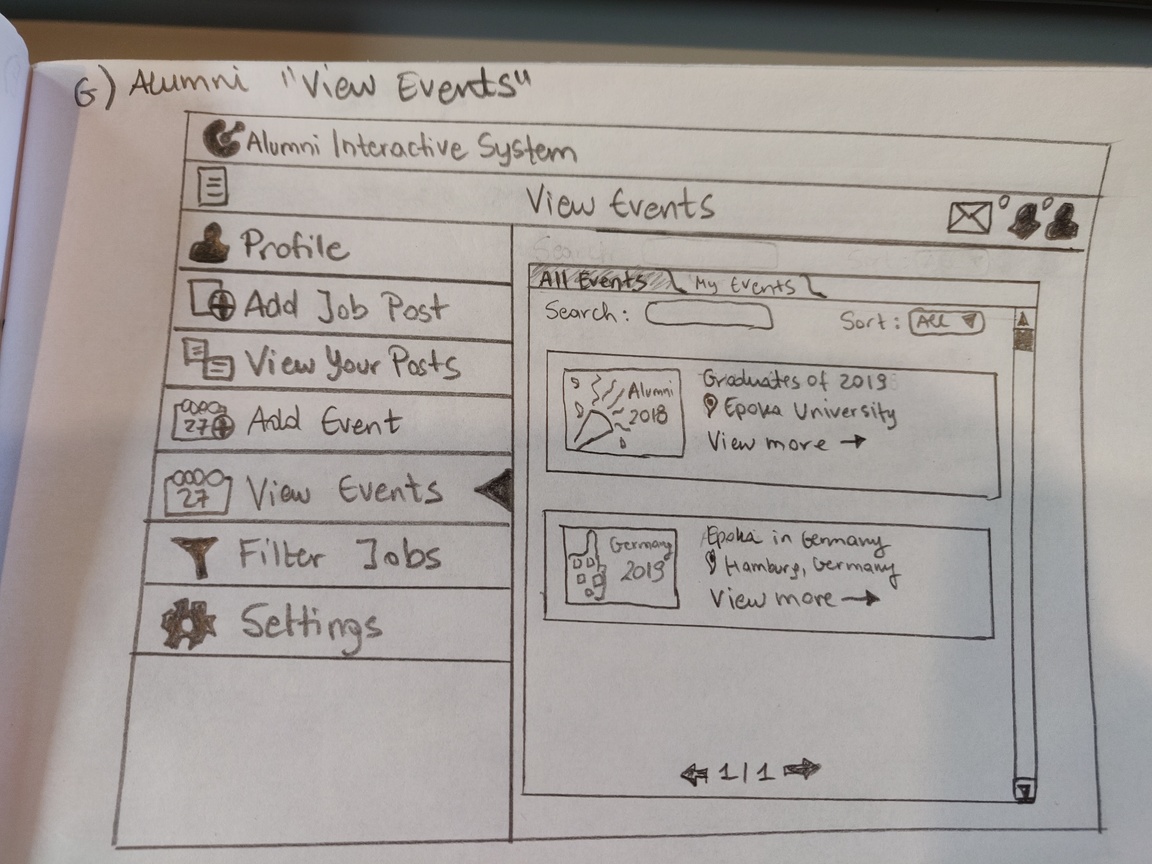 G) Alumni "View Events"
Alumni Interactive System
View Events
Profile
Add Job Post
View Your Posts
27 Add Event
27 View Events
Filter Jobs
Settings
All Events My Events
Search: Sort: All
Alumni
2018
Graduates of 2019
Epoka University
View more →
Germany
2019
Epoka in Germany
Hamburg, Germany
View more →
1/1